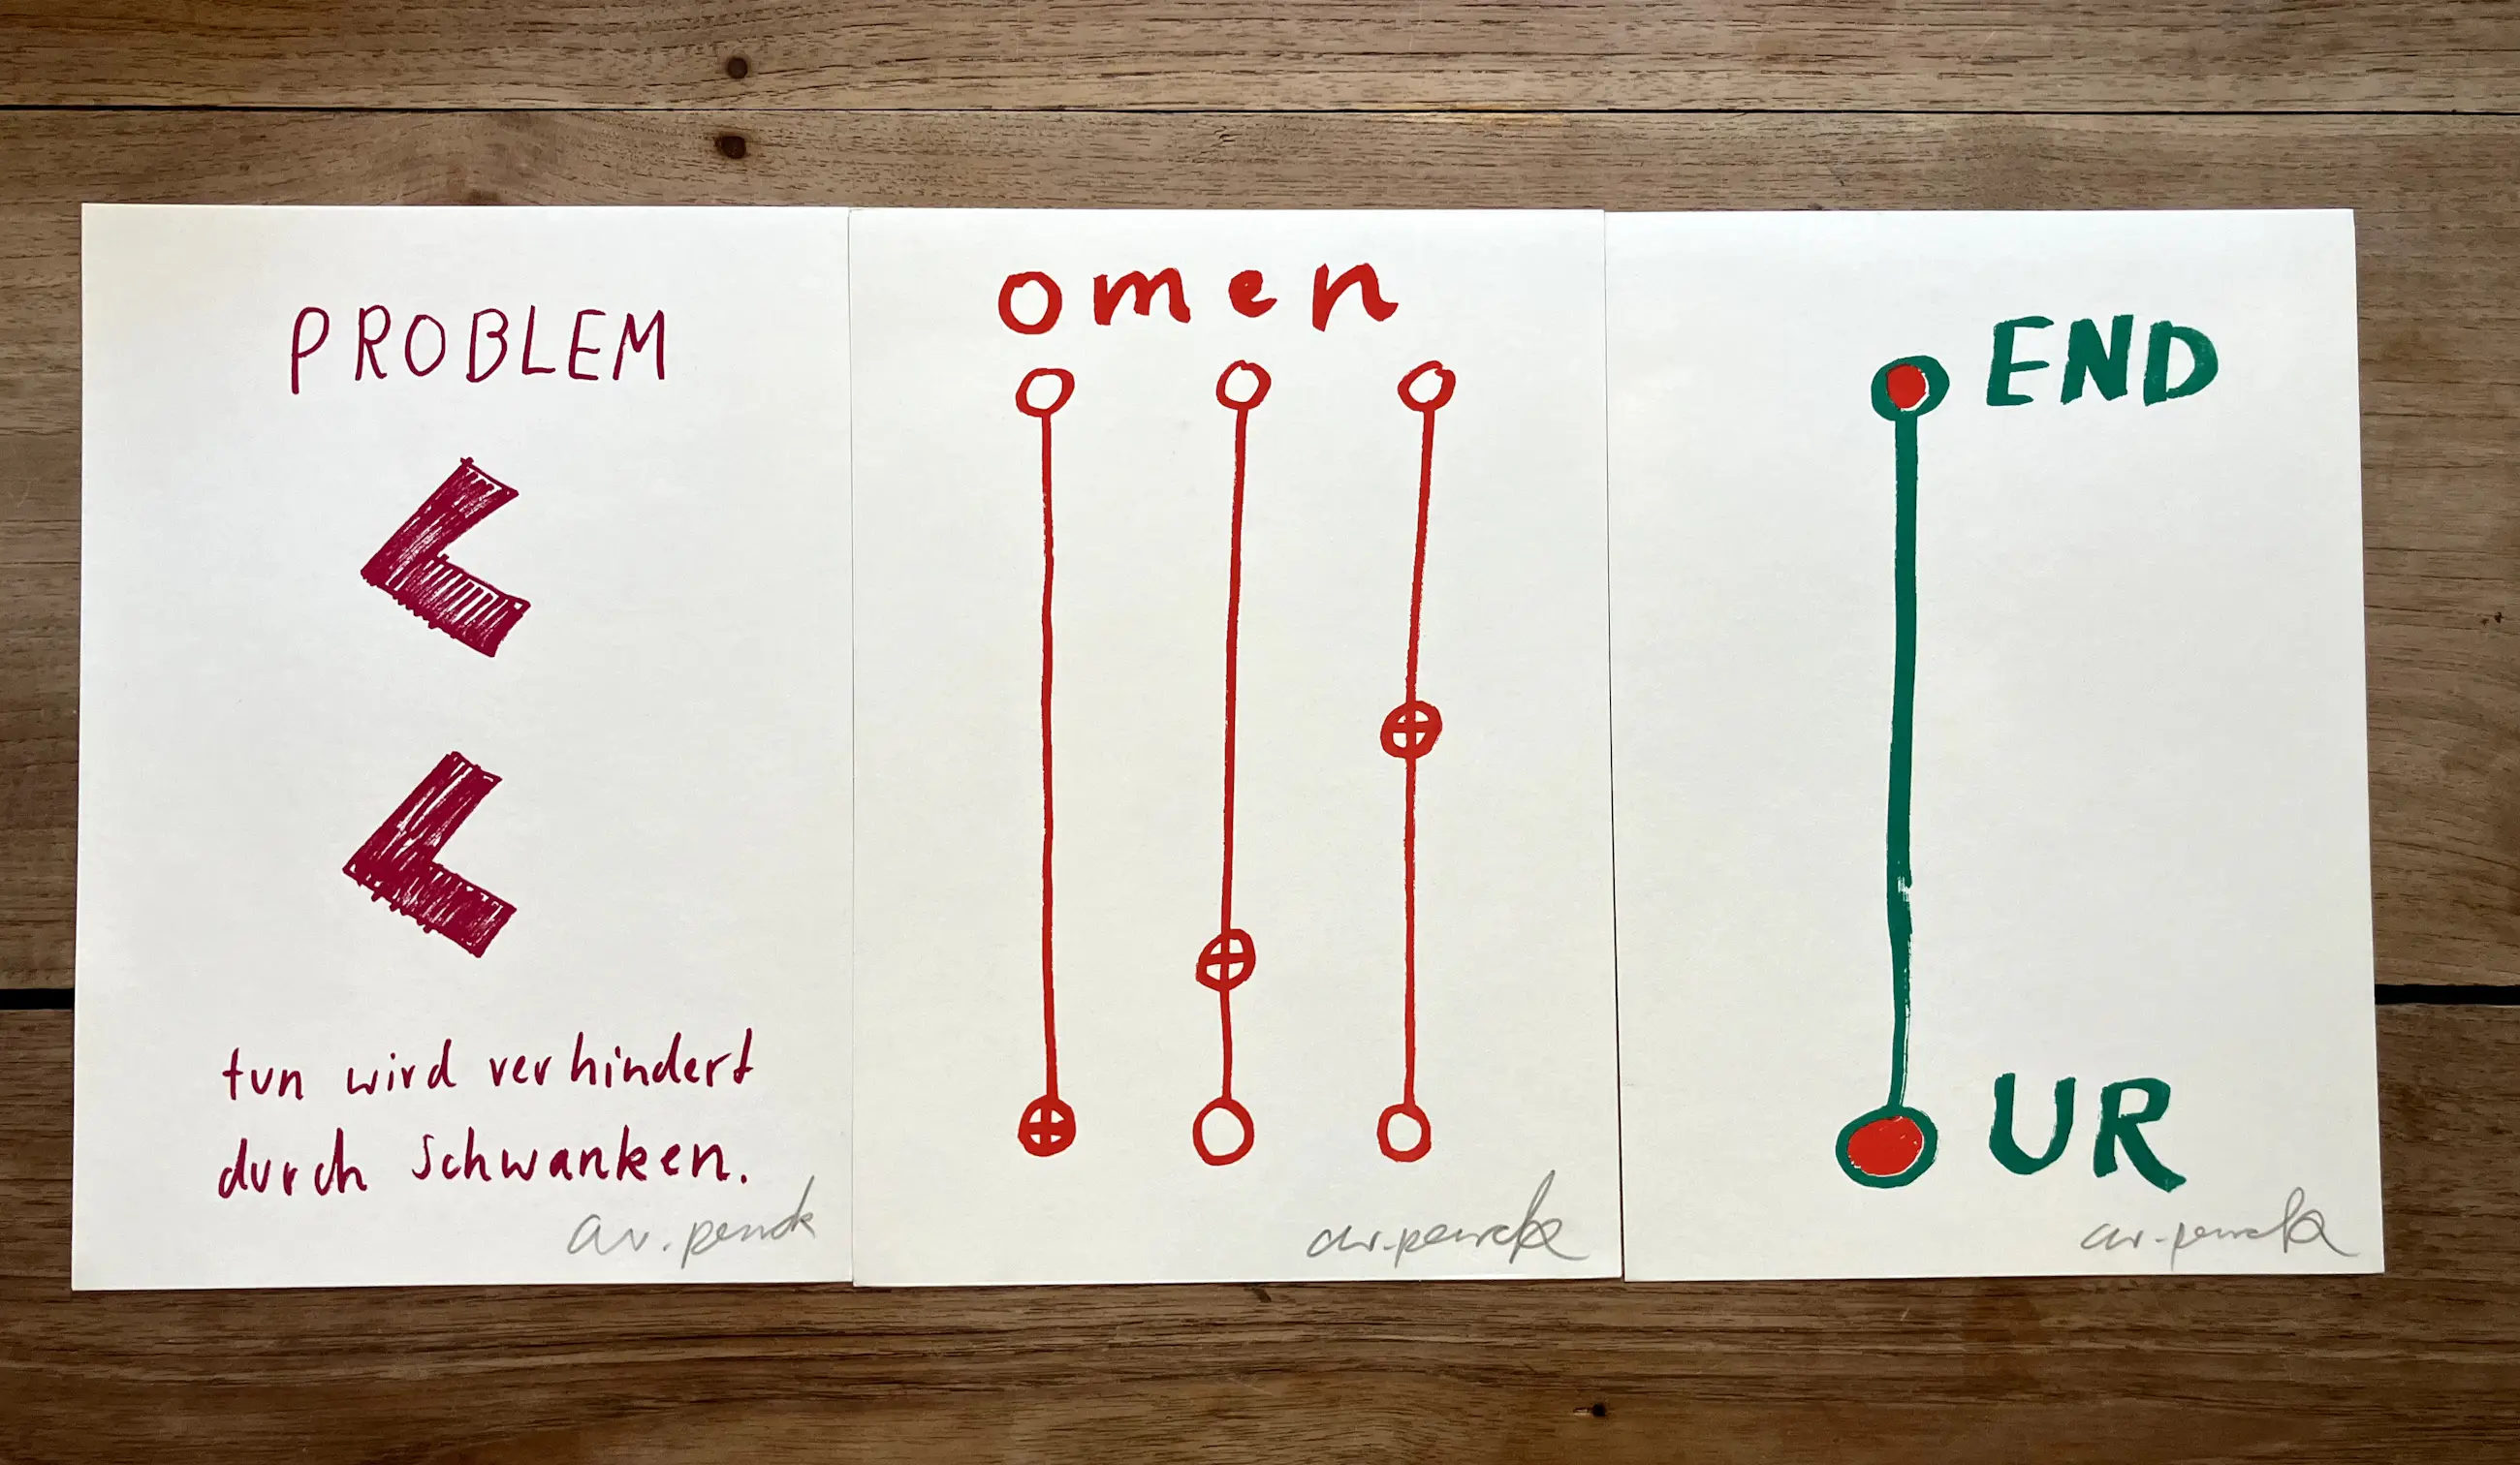 PROBLEM
tun wird verhindert
durch schwanken.
a.r. penck
omen
a.r. penck
END
UR
a.r. penck